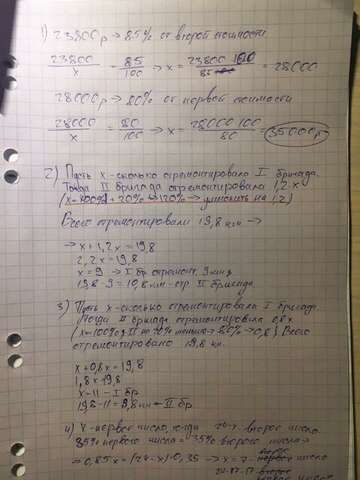 1) 23800р → 85% от второй стоимости
23800/x = 85/100 → x = 23800·100/85 = 28000
28000р → 80% от первой стоимости
28000/x = 80/100 → x = 28000·100/80 = 35000р
2) Пусть x - сколько отремонтировала I бригада.
Тогда II бригада отремонтировала 1,2x
(x=100% + 20% → 120% → умножить на 1,2)
Всего отремонтировали 19,8 км →
→ x + 1,2x = 19,8
2,2x = 19,8
x = 9 → I бр отремонт. 9 км
19,8 - 9 = 10,8 км - отр II бригада.
3) Пусть x - сколько отремонтировала I бригада.
Тогда II бригада отремонтировала 0,8x
Всего
отремонтировано 19,8 км.
x + 0,8x = 19,8
1,8x = 19,8
x = 11 - I бр
19,8 - 11 = 8,8 км ← II бр
4) x - первое число, тогда 24-x - второе число
35% второго числа →
= 0,85x = (24-x)·0,35 → x = 7 -
второе